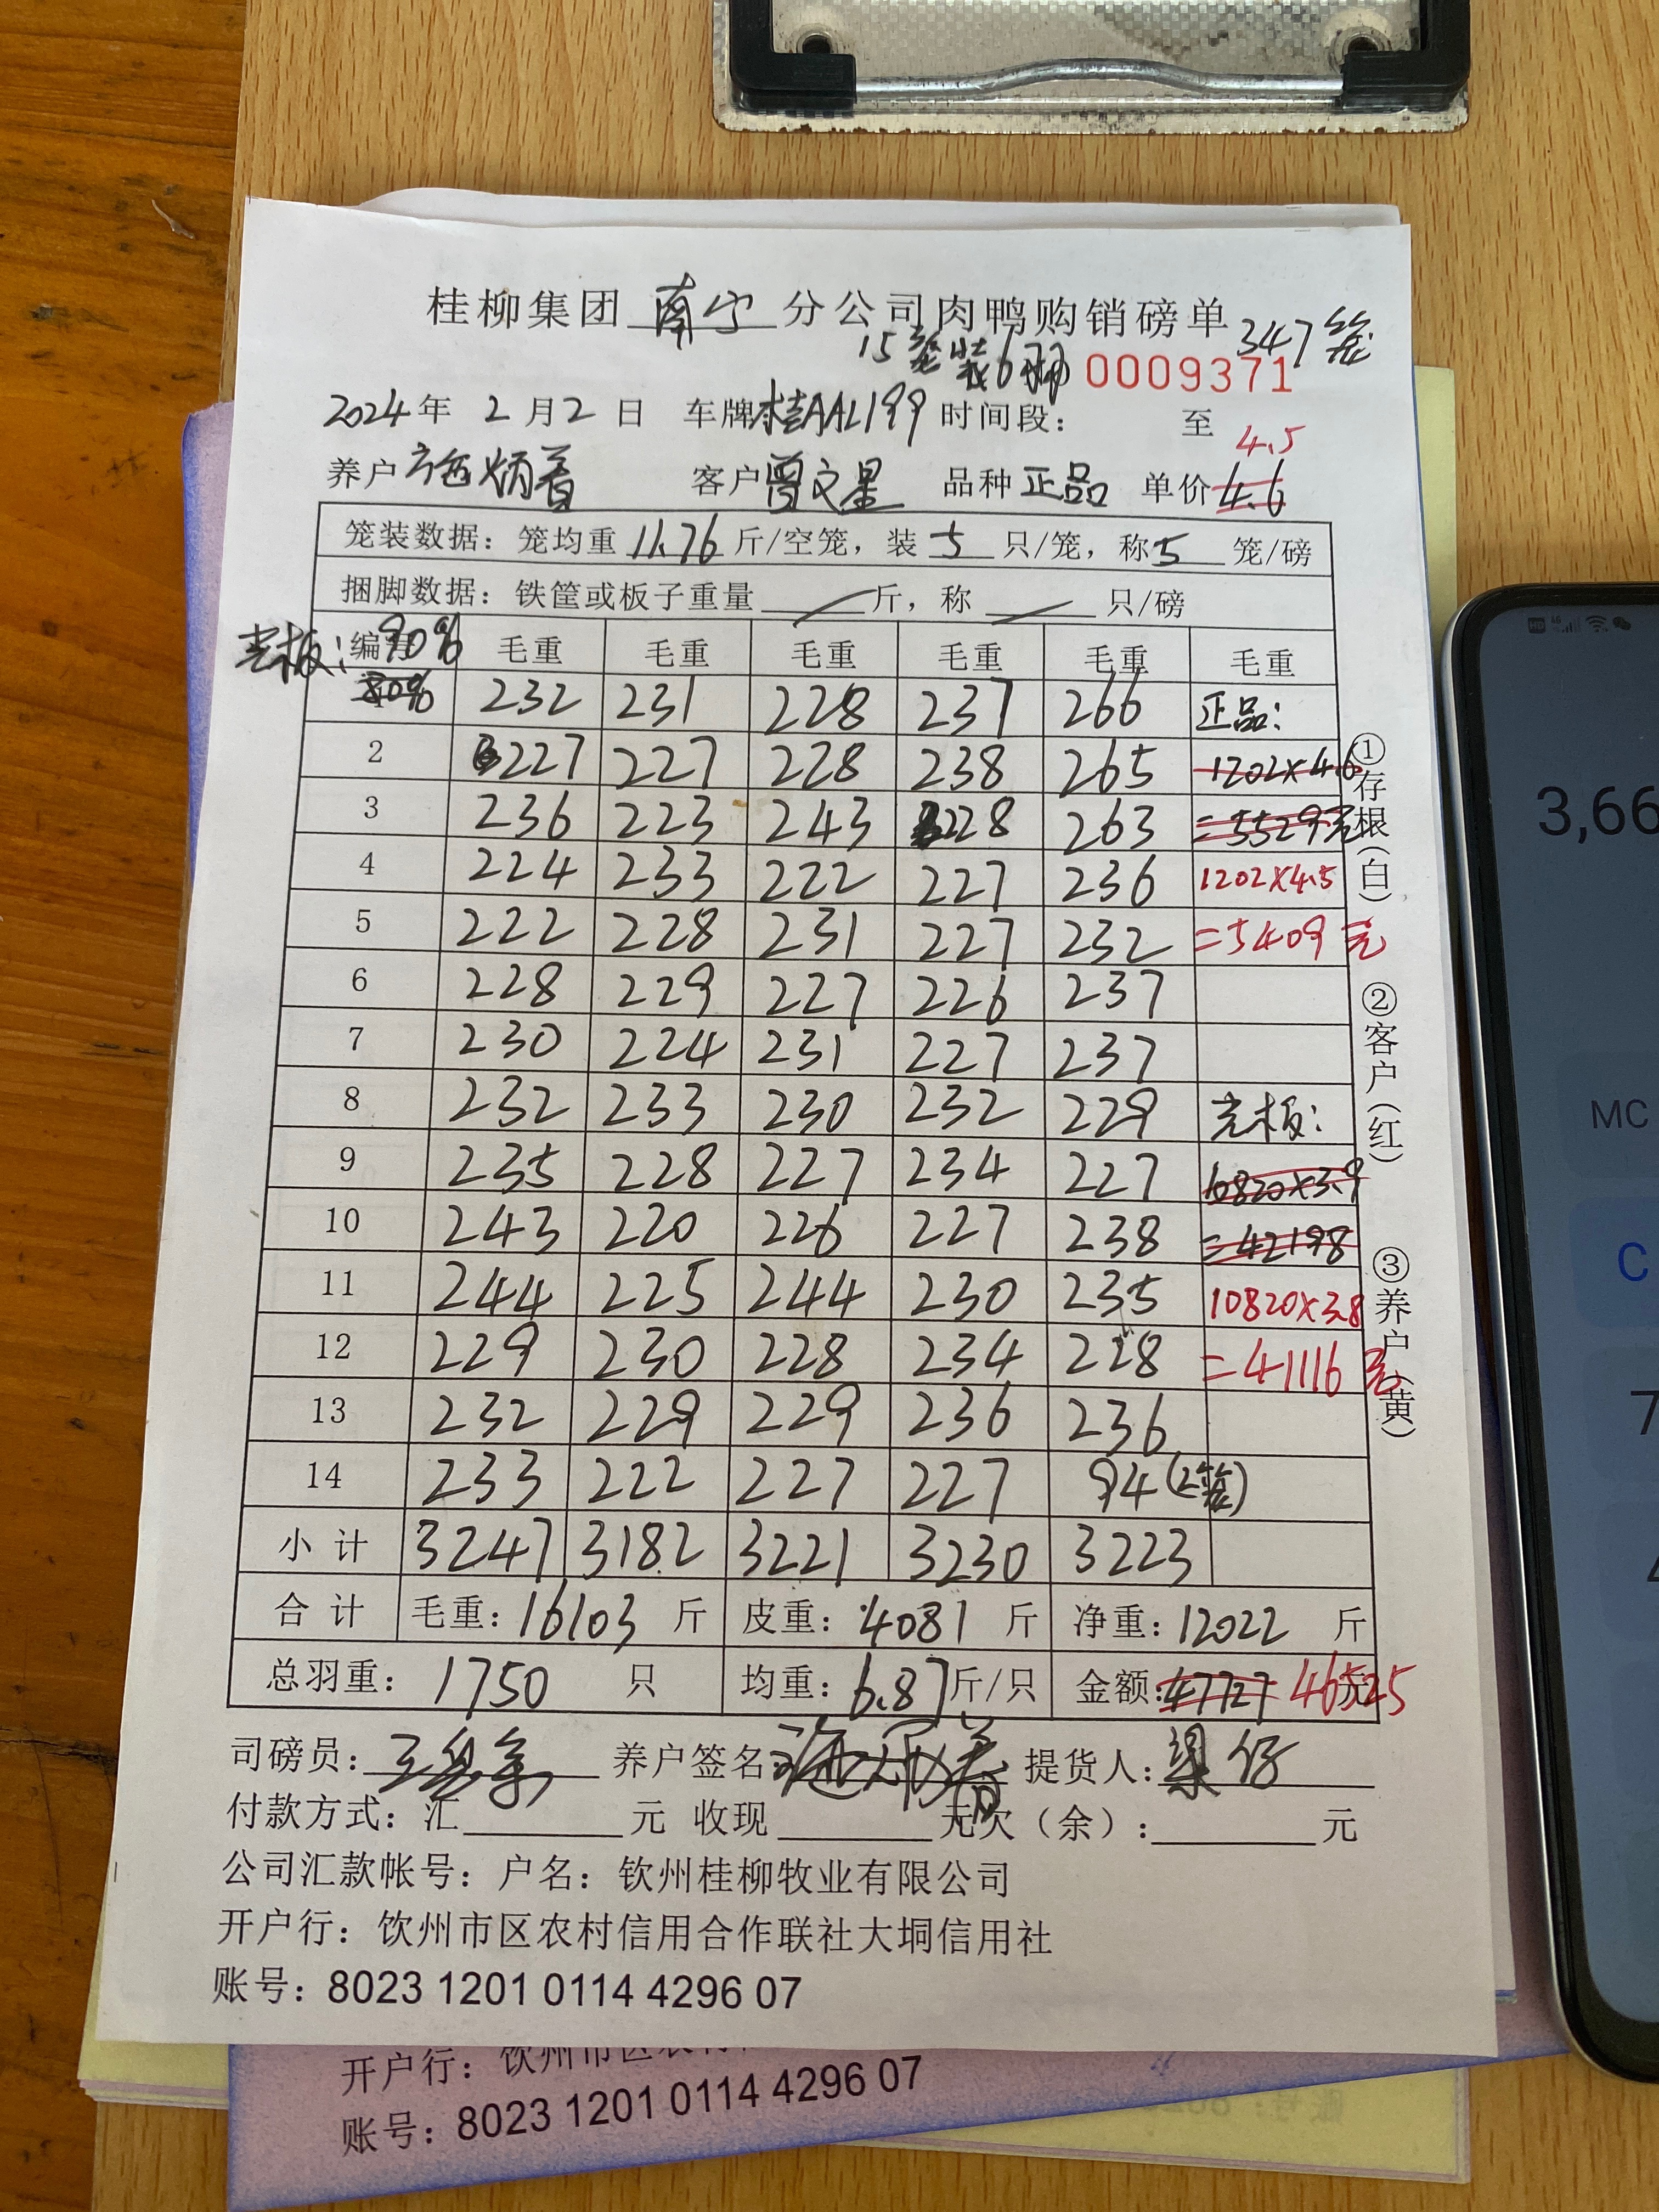 桂柳集团 南宁 分公司肉鸭购销磅单 347笼
15笼装6羽 0009371
2024年 2月2日 车牌桂AAL199 时间段: 至
4.5
养户 施炳着 客户 曾文星 品种 正品 单价 4.6
笼装数据:笼均重 11.76 斤/空笼,装 5 只/笼,称 5 笼/磅
捆脚数据:铁筐或板子重量 斤,称 只/磅
光板:90% 编号 毛重 毛重 毛重 毛重 毛重 毛重
80% 232 231 228 237 266 正品:
2 227 227 228 238 265 1202×4.6
3 236 223 243 228 263 =5529元
4 224 233 222 227 236 1202×4.5
5 222 228 231 227 232 =5409元
6 228 229 227 226 237
7 230 224 231 227 237
8 232 233 230 232 229 光板:
9 235 228 227 234 227 10820×3.9
10 243 220 226 227 238 =42198
11 244 225 244 230 235 10820×3.8
12 229 230 228 234 228 =41116元
13 232 229 229 236 236
14 233 222 227 227 94(2笼)
小计 3247 3182 3221 3230 3223
合计 毛重:16103 斤 皮重:4081 斤 净重:12022 斤
总羽重: 1750 只 均重:6.87斤/只 金额:47727 46525元
司磅员: 养户签名: 提货人:梁仔
付款方式:汇 元 收现 元欠(余): 元
公司汇款帐号:户名:钦州桂柳牧业有限公司
开户行:钦州市区农村信用合作联社大垌信用社
账号:8023 1201 0114 4296 07
①存根(白) ②客户(红) ③养户(黄)
开户行:钦州市区农村
账号:8023 1201 0114 4296 07
3,66
MC
C
7